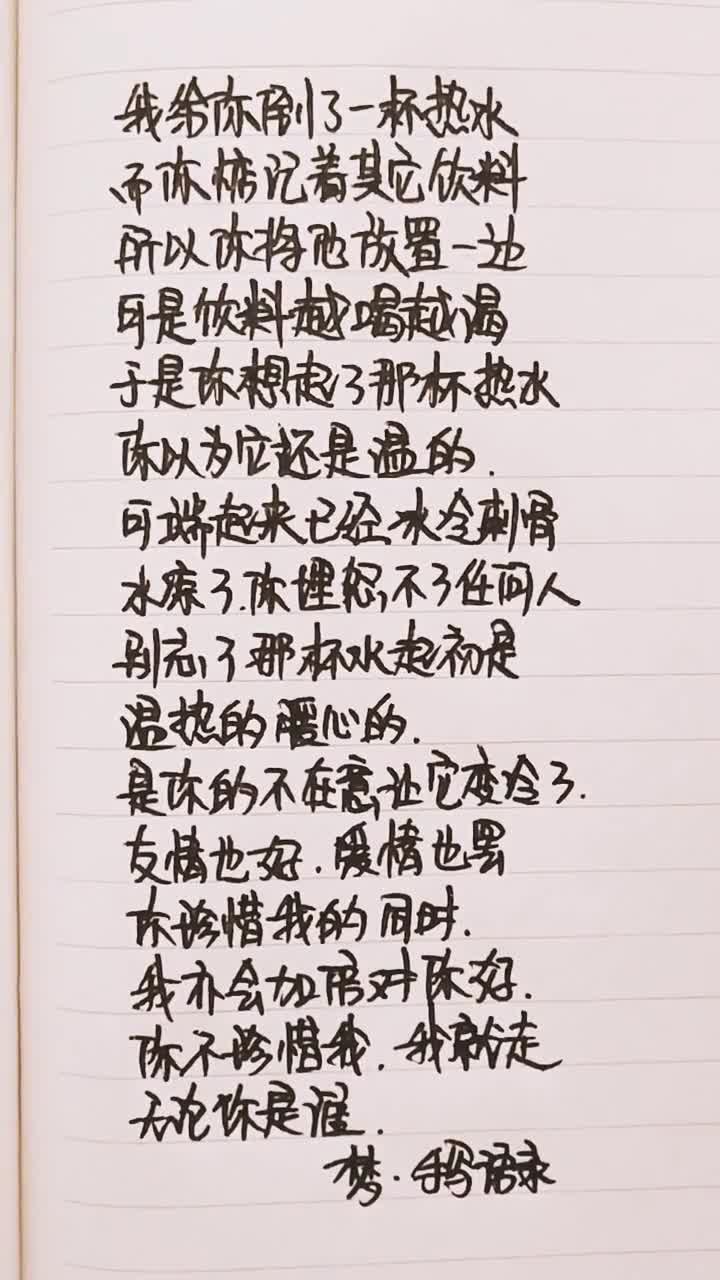 我给你倒了一杯热水
而你惦记着其它饮料
所以你将他放置一边
可是饮料越喝越渴
于是你想起了那杯热水
你以为它还是温的.
可端起来已经冰冷刺骨
水凉了.你埋怨不了任何人
别忘了那杯水起初是
温热的暖心的.
是你的不在意,让它变冷了.
友情也好.暖情也罢
你珍惜我的同时.
我亦会加倍对你好.
你不珍惜我.我就走
无论你是谁.
梦.手写语录